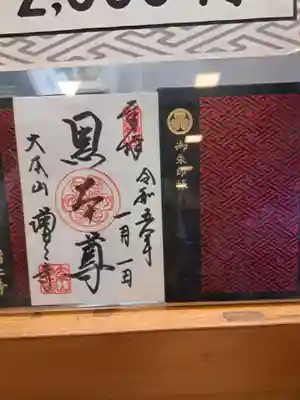 御朱印帳
奉拝
令和五年
一月一日
黒本尊
大本山 増上寺